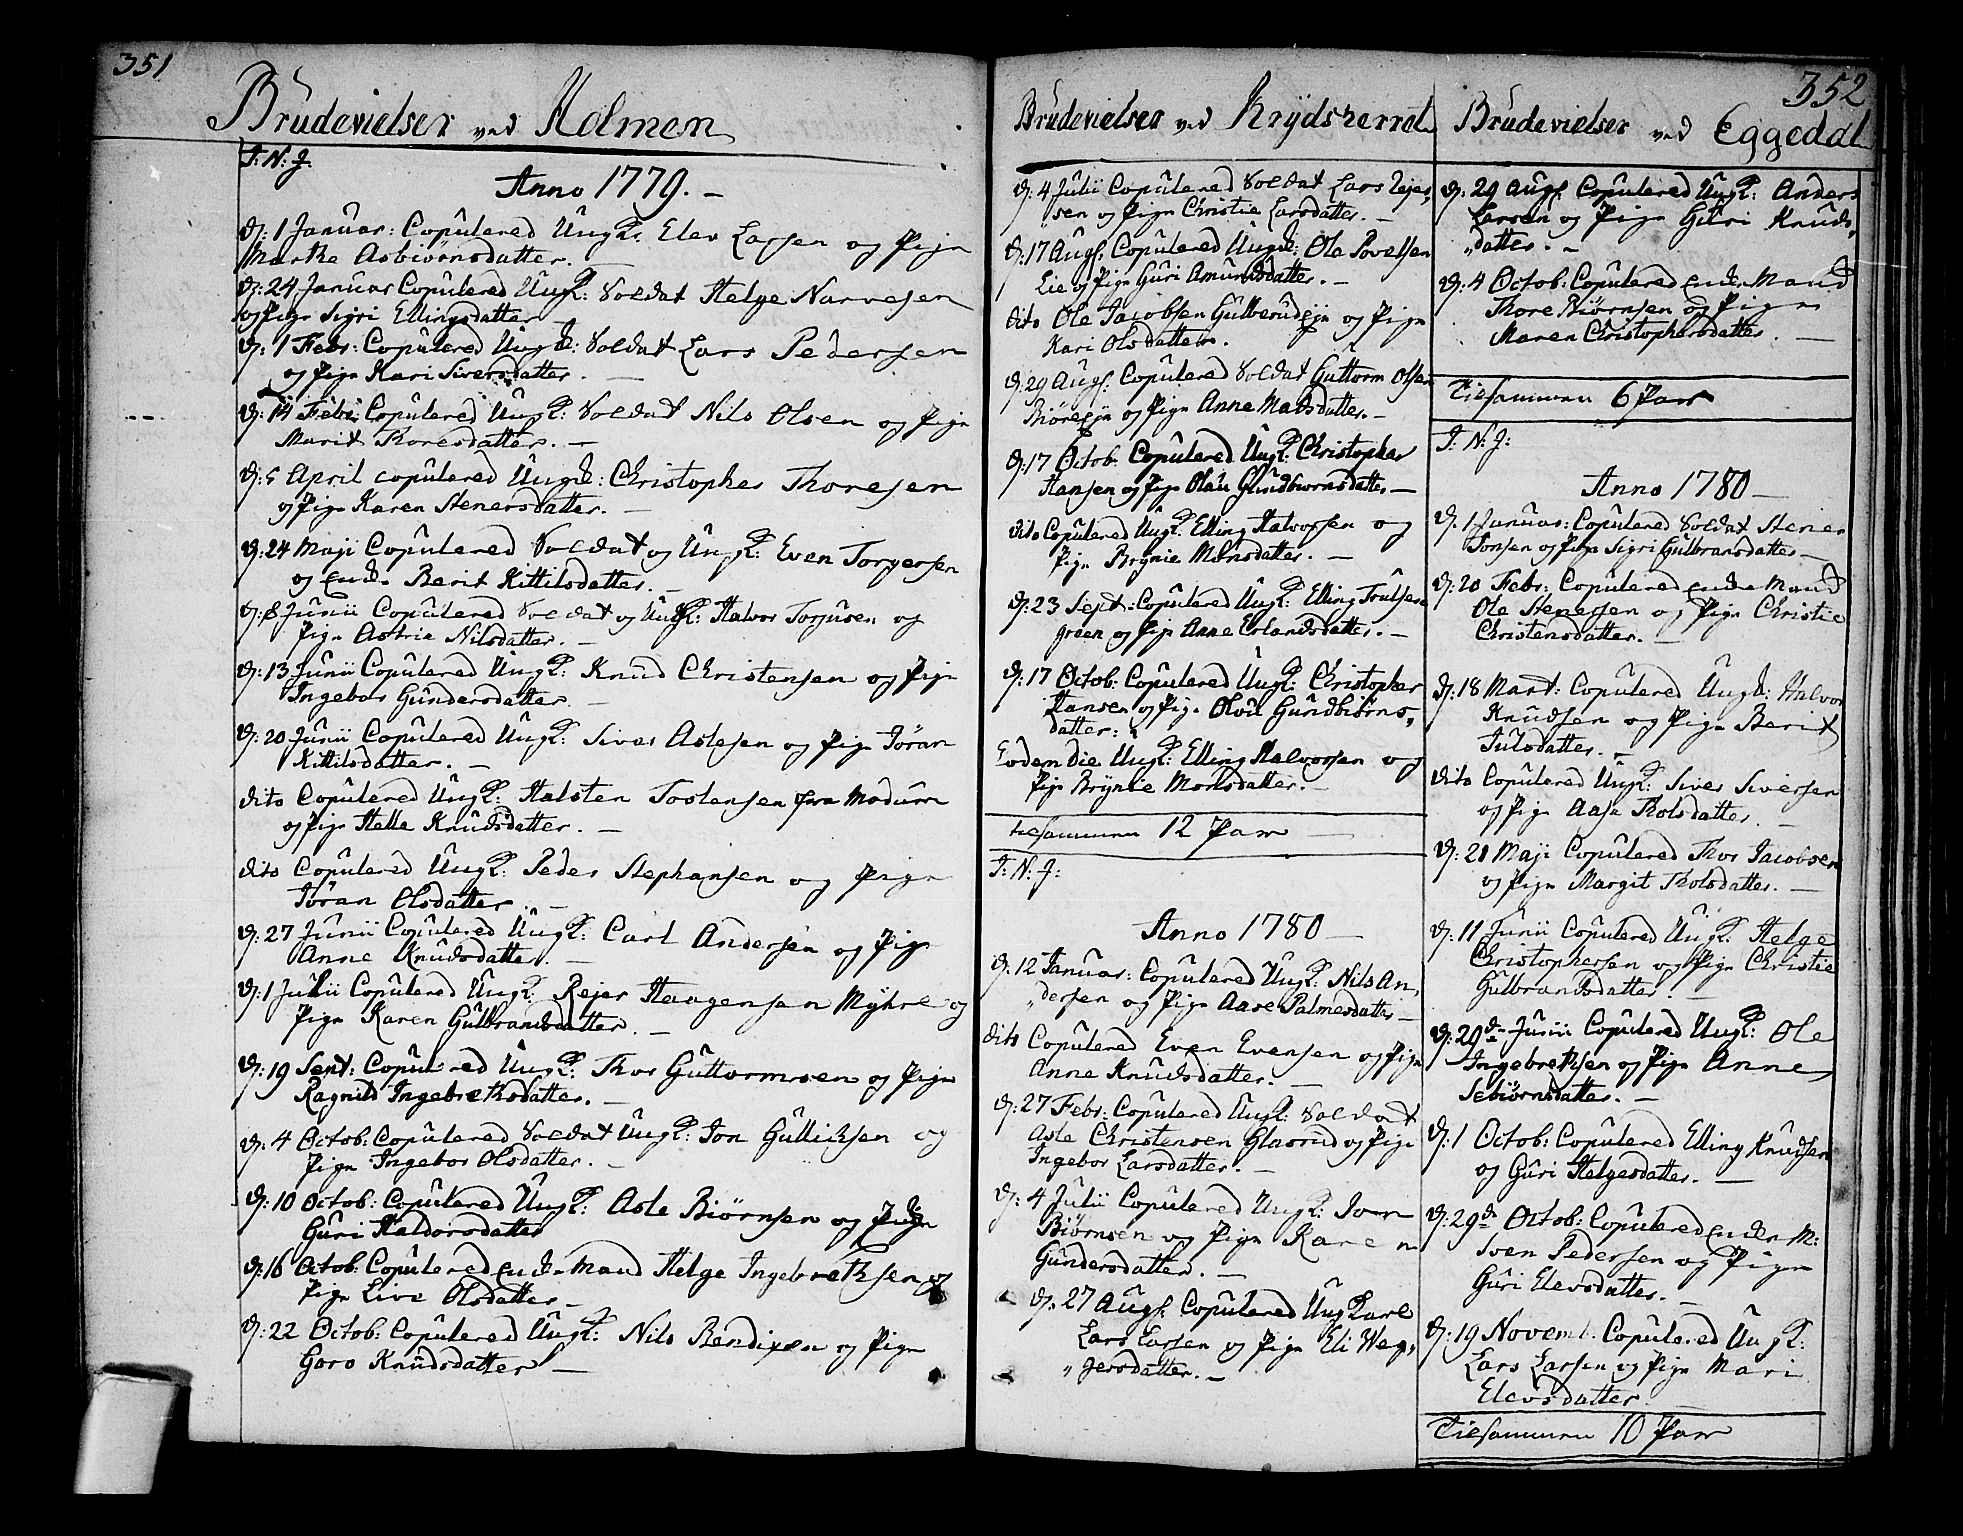 351
Brudevielser ved Holmen
I: N: J.
Anno 1779. –
d: 1 Januar: Copulered Ungk: Elev Larsen og Pign
Marthe Asbiörnsdatter. –
d: 24 Januar Copulered Ungk: Soldat Helge Narvesen
og Pign Sigri Ellingsdatter
d: 1 Febr: Copulered Ungk: Soldat Lars Pedersen
og Pign Kari Siversdatter. –
d: 14 Febr: Copulered Ungk: Soldat Nils Olsen og Pign
Marit Thoresdatter. –
d: 5 April copulered Ungk: Christopher Thoresen
og Pign Karen Stenersdatter. –
d: 24 Maji Copulered Soldat og Ungk: Even Torgersen
og Enk. Berit Kittilsdatter. –
d: 8 Junii Copulered Soldat og Ungk: Halvor Torjusen og
Pign Astrie Nilsdatter. –
d: 13 Junii Copulered Ungk: Knud Christensen og Pign
Ingebor Gundersdatter. –
d: 20 Junii Copulered Ungk: Siver Aslesen og Pign Jöran
Kittilsdatter. –
dito Copulered Ungk: Halsten Tostensen fra Modum
og Pign Helle Knudsdatter. –
dito Copulered Ungk: Peder Stephansen og Pign
Jöran Olsdatter. –
d: 27 Junii Copulered Ungk: Carl Andersen og Pign
Anne Knudsdatter. –
d: 1 Julii Copulered Ungk: Rejer Haagensen Myhre og
Pign Karen Gulbrandsdatter. –
d: 19 Sept: Copulered Ungk: Thor Guttormsen og Pign
Ragnild Ingebrethsdatter. –
d: 4 Octob: Copulered Soldat Ungk: Jon Gullichsen og
Pign Ingebor Olsdatter. –
d: 10 Octob: Copulered Ungk: Asle Biörnsen og Pign
Guri Haldorsdatter
d: 16 Octob: Copulered Enke Mand Helge Ingebrethsen og
Pign Live Olsdatter –
d: 22 Octob: Copulered Ungk: Nils Bendixen og Pign
Goro Knudsdatter –
Brudevielser ved Krydsherret
d: 4 Julii Copulered Soldat Lars Rejer,
„sen og Pign Christie Larsdatter. –
d: 17 Augs: Copulered Ungk: Ole Povelsen
Lie og Pign Guri Amundsdatter. –
dito Ole Jacobsen Gulberudejn og Pign
Kari Olsdatter.
d: 29 Augs: Copulered Soldat Guttorm Olsen
Biöreejn og Pign Anne Matsdatter. –
d: 17 Octob. Copulered Ungk: Christopher
Hansen og Pign Olau Gundbiornsdatter –
dito Copulered Ungk: Elling Halvorsen og
Pign Brynie Monsdatter. –
d: 23 Sept: Copulered Ungk: Elling Trulsen
green og Pign Anne Erlandsdatter. –
d: 17 Octob: Copulered Ungk: Christopher
Hansen og Pign Olou Gundbiörns,
datter:
Eodem die Ungk: Elling Halvorsen og
Pign Brynie Monsdatter. –
tilsammen 12 Par –
I: N: J:
Anno 1780 –
d: 12 Januar: Copulered Ungk: Nils An,
„dersen og Pign Aase Palmesdatter –
dito Copulered Even Evensen og Pign
Anne Knudsdatter. –
d: 27 Febr: Copulered Ungk: Soldat
Asle Christensen Glasrud og Pign
Ingebor Larsdatter. –
d: 4 Julii Copulered Ungk: Iver
Biörnsen og Pign Karen
Gundersdatter. –
d. 27 Augs: Copulered Ungkarl
Lars Larsen og Pign Eli Weg,
„gersdatter. –
352
Brudevielser ved Eggedal
d: 29 Augs: Copulered Ungk: Anders
Larsen og Pign Guri Knuds,
„datter. –
d: 4 Octob: Copulered Enke Mand
Thore Biörnsen og Pign
Maren Christophersdatter. –
Tilsammen 6 Par
I: N: J:
Anno 1780 –
d: 1 Januar: Copulered Soldat Stener
Jonsen og Pign Sigri Gulbransdatter –
d: 20 Febr: Copulered Enke Mand
Ole Stenersen og Pign Christie
Christensdatter. –
d: 18 Mart: Copulered Ungk: Halvor
Knudsen og Pign Berit
Julsdatter. –
dito Copulered Ungk: Siver Siversen
og Pign Aase Tholsdatter. –
d: 21 Maji Copulered Thor Jacobsen
og Pign Margit Tholsdatter. –
d: 11 Junii Copulered Ungk: Helge
Christophersen og Pign Christie
Gulbrandsdatter. –
d: 29de Junii Copulered Ungk: Ole
Ingebrethsen og Pign Anne
Sebiörnsdatter. –
d: 1 Octob: Copulered Elling Knudsen
og Guri Helgesdatter. –
d: 29de Octob: Copulered Enke M:
Sven Pedersen og Pign
Guri Elevsdatter. –
d: 19 Novemb. Copulered Ungk:
Lars Larsen og Pign Mari
Elevsdatter
Tilsammen 10 Par